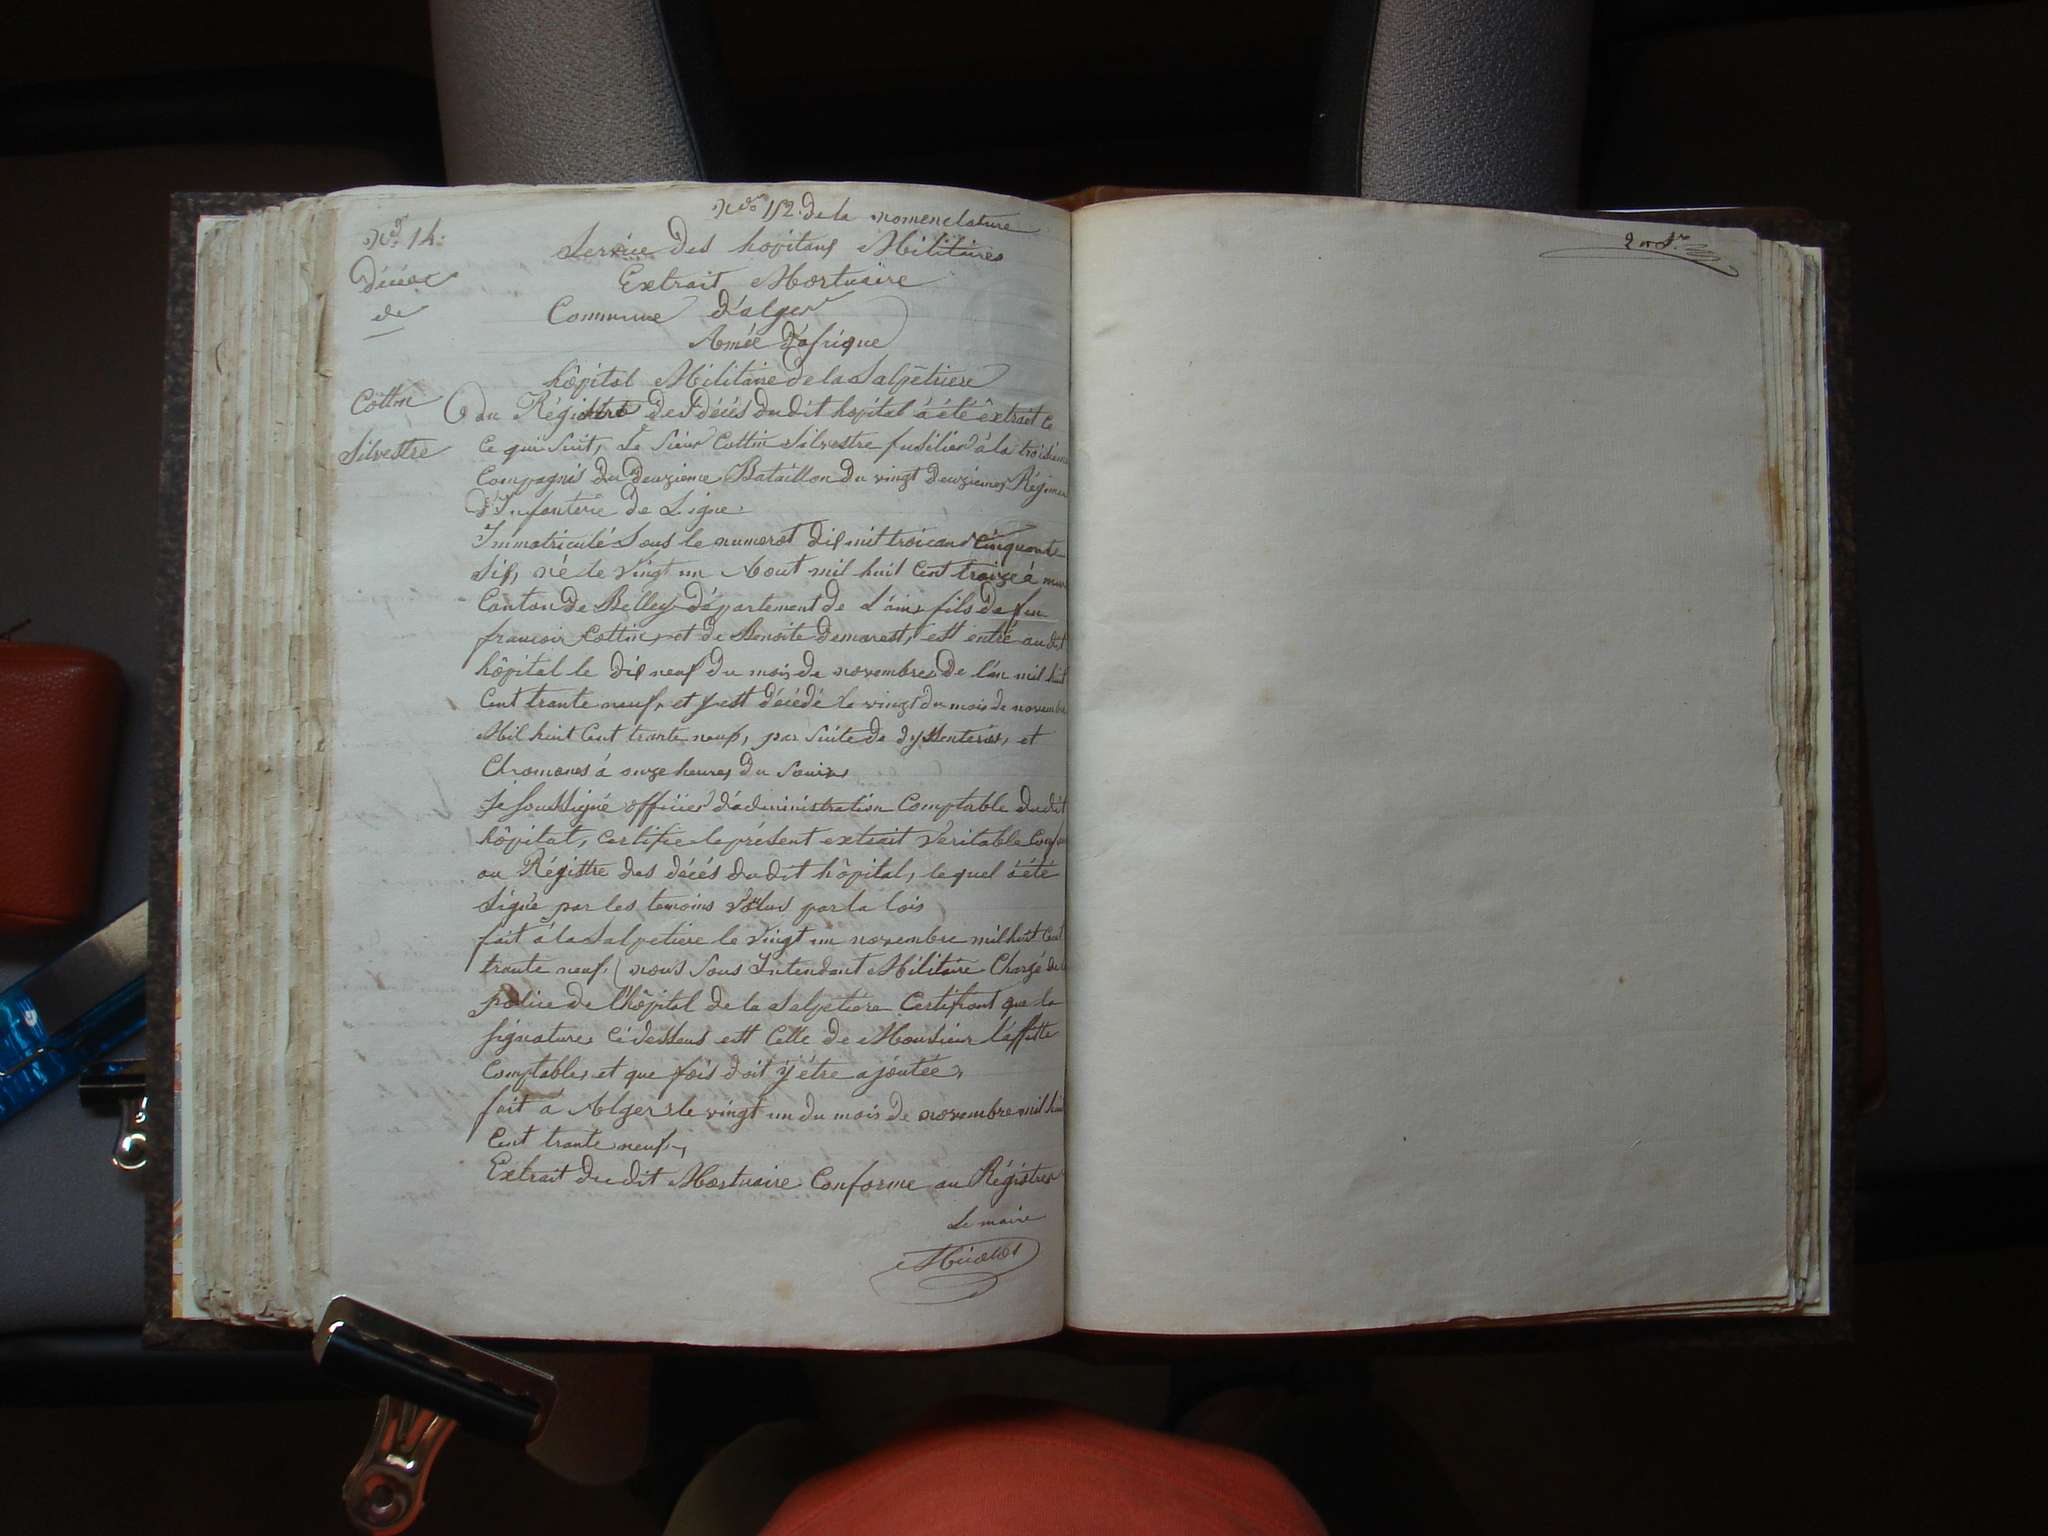 No 152 de la nomenclature
No 14.
Service des hopitaux Militaires
Décéx
de
Extrait Mortuaire
Commune d'alger
Armée d'afrique
hôpital Militaire de la Salpêtriere
Cottin
Silvestre
du Régistre des décés du dit hopital à été êxtrait ce
ce qui suit, Le Sieur Cottin Silvestre fusilier à la troisième
Compagnie du deuxieme Bataillon du vingt deuxieme Régimen
d'Infanterie de Ligne.
Immatriculé Sous le numerot dix mil troi cand Cinquante
Six, né le vingt un Aout mil huit Cent traize à
Canton de Belley département de L'ain, fils de feu
francoir Cottin, et de Benoite Demarest, est entré au dit
hôpital le dix neuf du mois de novembre de l'an mil huit
Cent trante neuf, et y est décédé le vingt du mois de novembre
Mil huit Cent trante neuf, par Suite de et
à onze heures du Soir
Je Soussigné officier d'administration Comptable du dit
hôpital, Certifie le présent extrait Veritable
au Régistre des décés du dit hôpital, lequel à été
Signé par les temoins par la lois
fait à la Salpetiere le Vingt un novembre mil huit Cent
trante neuf, nous Sous Intendant Militaire Chargé de
police de l'hôpital de la Salpetiere Certifiont que la
Signature Cidessus est Celle de Monsieur
Comptable, et que fois doit y être ajoutée,
fait à Alger le vingt un du mois de novembre mil hui
Cent trante neuf,
Extrait du dit Mortuaire Conforme au Régistre
Le maire